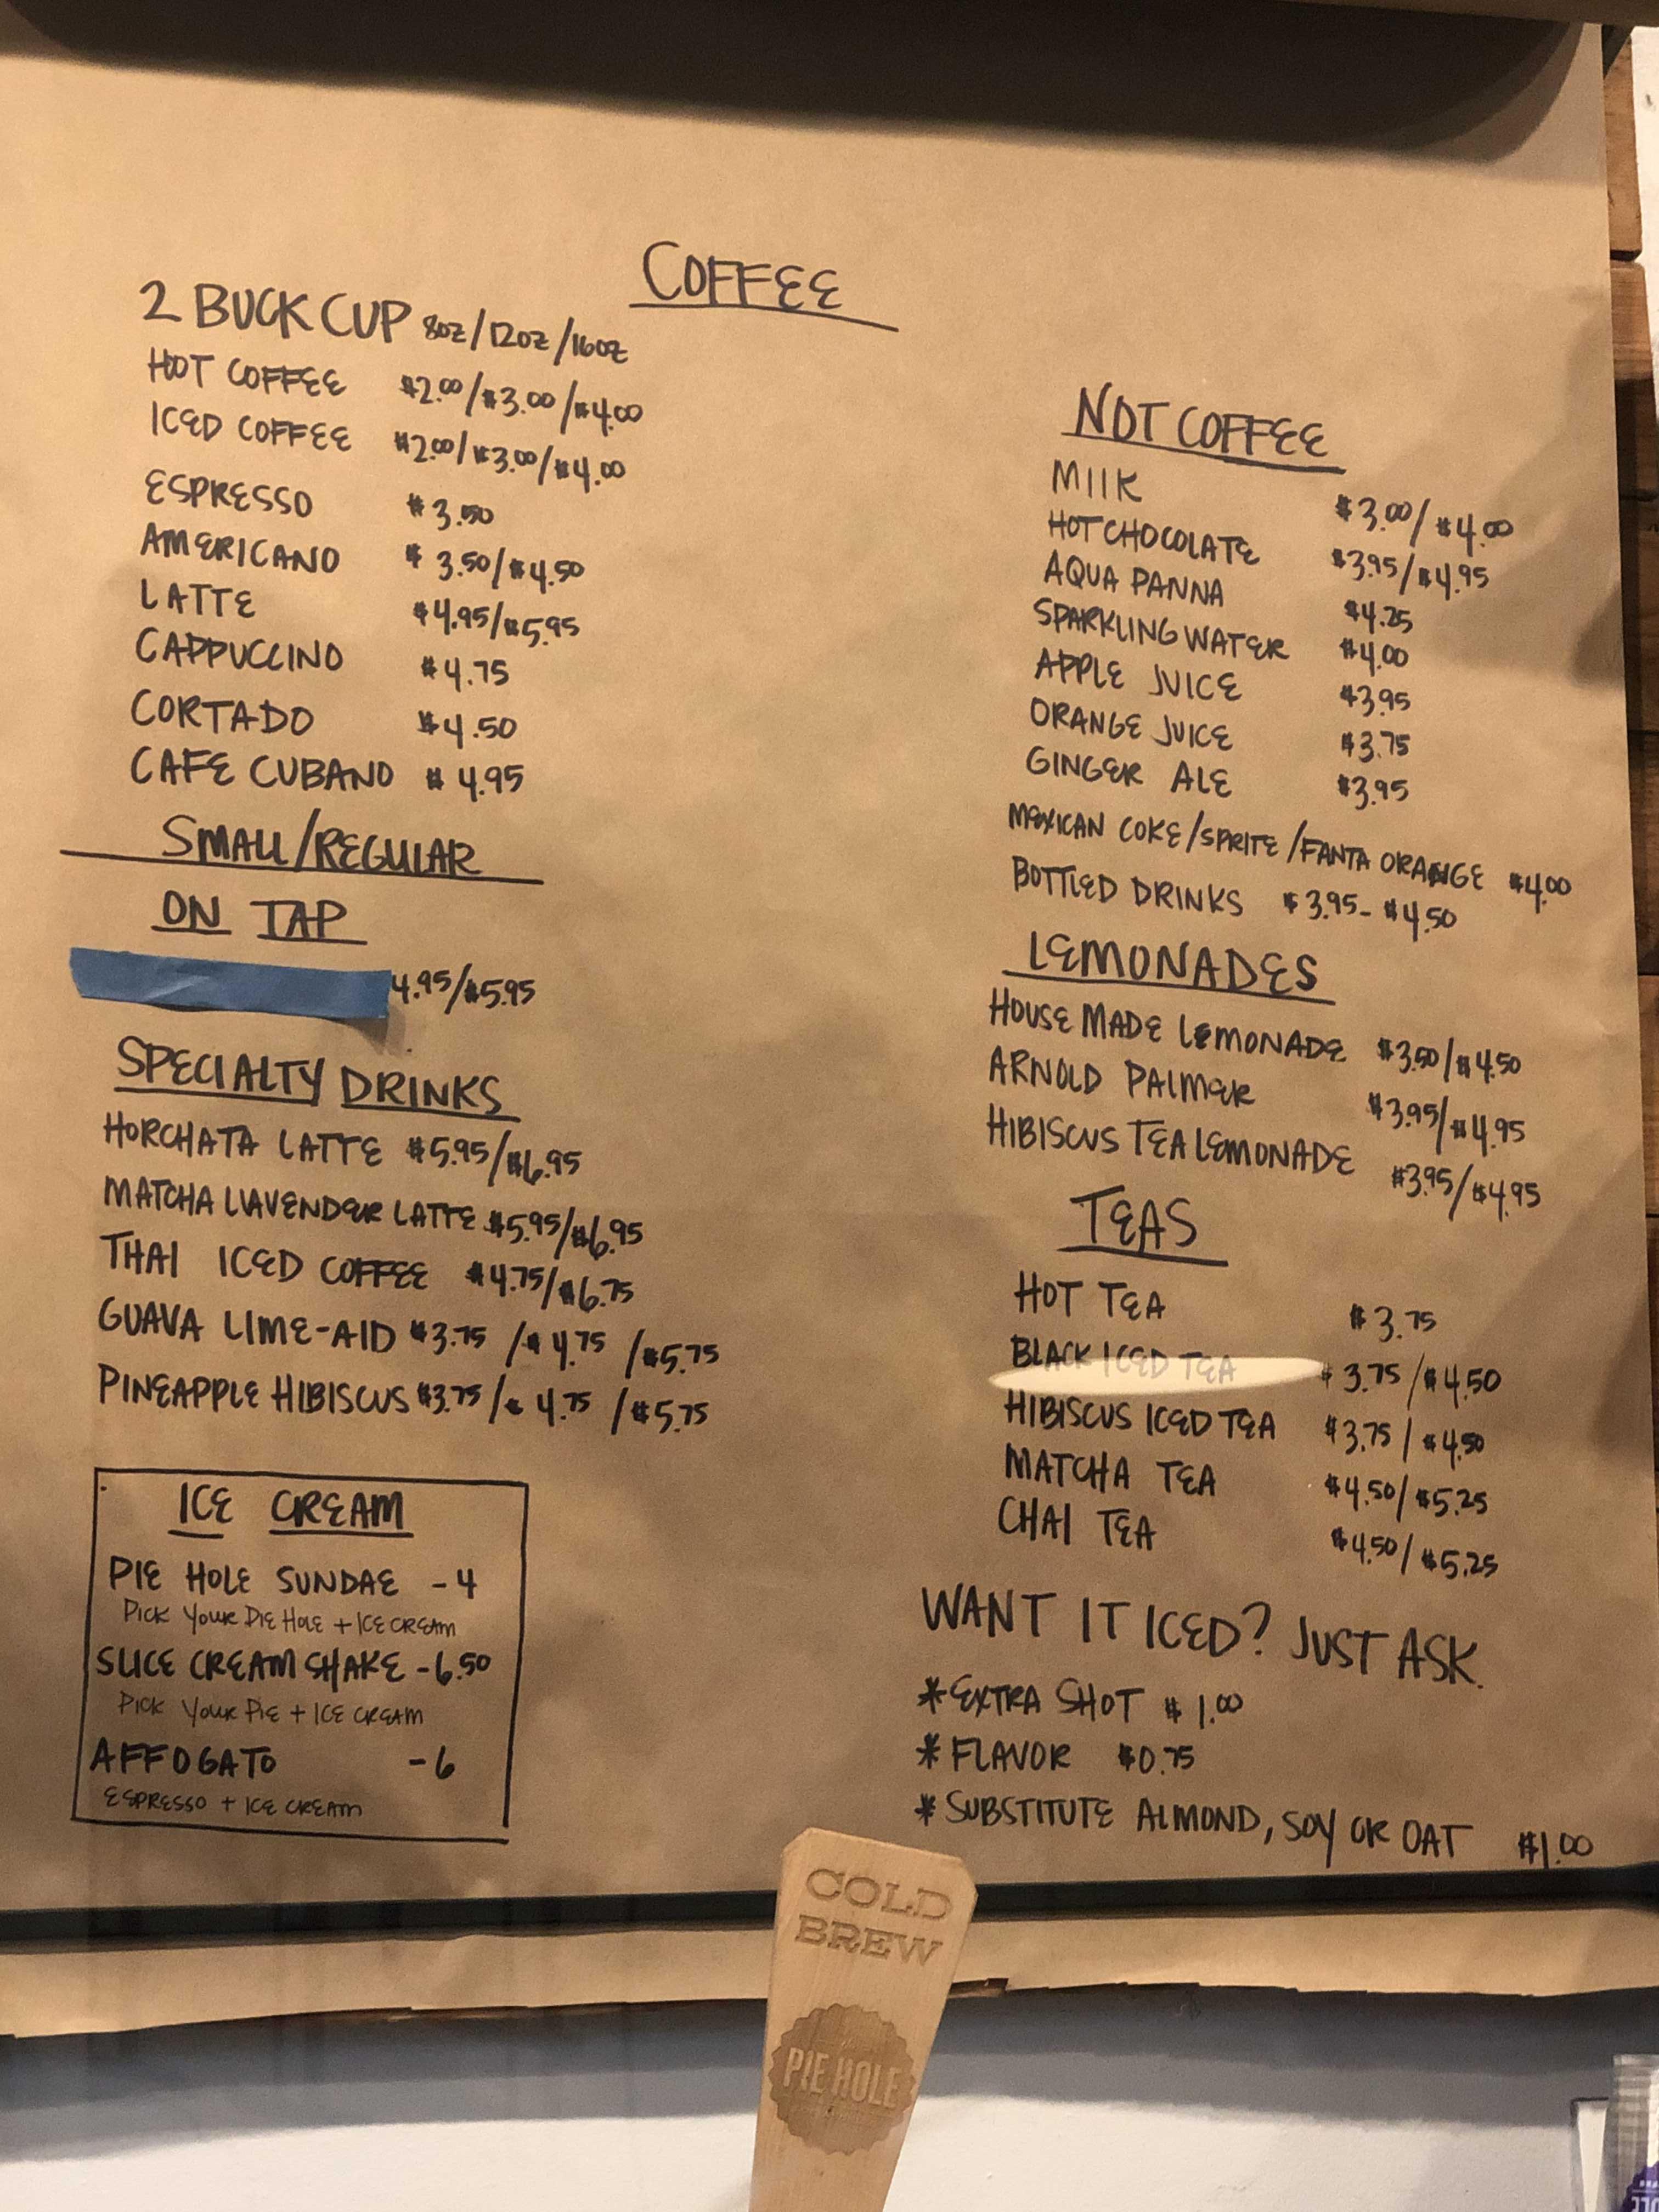 COFFEE
2 BUCK CUP 8OZ/12OZ/16OZ
HOT COFFEE $2.00/$3.00/$4.00
ICED COFFEE $2.00/$3.00/$4.00
ESPRESSO $3.50
AMERICANO $3.50/$4.50
LATTE $4.95/$5.95
CAPPUCCINO $4.75
CORTADO $4.50
CAFE CUBANO $4.95
SMALL/REGULAR
ON TAP
4.95/$5.95
SPECIALTY DRINKS
HORCHATA LATTE $5.95/$6.95
MATCHA LAVENDER LATTE $5.95/$6.95
THAI ICED COFFEE $4.75/$6.75
GUAVA LIME-AID $3.75 /$4.75 /$5.75
PINEAPPLE HIBISCUS $3.75/$4.75 /$5.75
ICE CREAM
PIE HOLE SUNDAE - 4
PICK YOUR PIE HOLE + ICE CREAM
SLICE CREAM SHAKE - 6.50
PICK YOUR PIE + ICE CREAM
AFFOGATO - 6
ESPRESSO + ICE CREAM
NOT COFFEE
MILK $3.00/$4.00
HOT CHOCOLATE $3.95/$4.95
AQUA PANNA $4.25
SPARKLING WATER $4.00
APPLE JUICE $3.95
ORANGE JUICE $3.75
GINGER ALE $3.95
MEXICAN COKE/SPRITE/FANTA ORANGE $4.00
BOTTLED DRINKS $3.95-$4.50
LEMONADES
HOUSE MADE LEMONADE $3.50/$4.50
ARNOLD PALMER $3.95/$4.95
HIBISCUS TEA LEMONADE $3.95/$4.95
TEAS
HOT TEA $3.75
BLACK ICED TEA $3.75/$4.50
HIBISCUS ICED TEA $3.75/$4.50
MATCHA TEA $4.50/$5.25
CHAI TEA $4.50/$5.25
WANT IT ICED? JUST ASK.
*EXTRA SHOT $1.00
*FLAVOR $0.75
*SUBSTITUTE ALMOND, SOY OR OAT $1.00
COLD
BREW
PIE HOLE